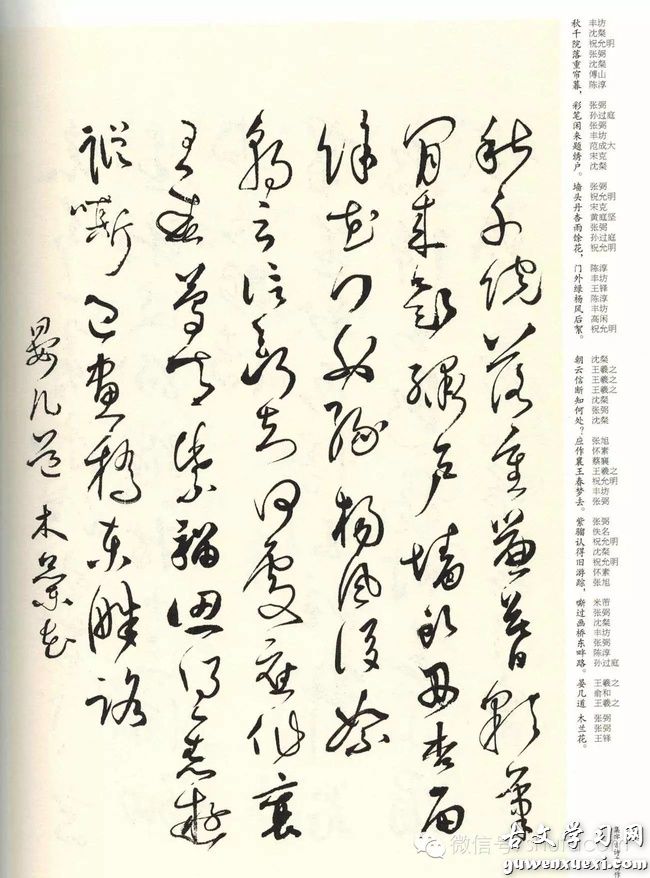 秋 丰坊
千 沈粲
院 祝允明
落 张弼
重 沈粲
帘 傅山
暮， 陈淳
彩 张弼
笔 孙过庭
闲 张弼
来 丰坊
题 范成大
绣 宋克
户。 沈粲
墙 张弼
头 祝允明
丹 宋克
杏 黄庭坚
雨 张弼
馀 孙过庭
花， 祝允明
门 陈淳
外 丰坊
绿 王铎
杨 陈淳
风 丰坊
后 高闲
絮。 祝允明
朝 沈粲
云 王羲之
信 王羲之
断 王羲之
知 沈粲
何 张弼
处？ 沈粲
应 张旭
作 怀素
襄 蔡襄
王 王羲之
春 祝允明
梦 丰坊
去。 张弼
紫 张弼
骝 佚名
认 祝允明
得 沈粲
旧 祝允明
游 怀素
踪， 张旭
嘶 米芾
过 张弼
画 沈粲
桥 丰坊
东 张弼
畔 陈淳
路。 孙过庭
晏 王羲之
几 俞和
道 王羲之
木 张弼
兰 张弼
花。 王铎
秋千院落重簾暮彩筆
閒来題繡户墙头丹杏雨
馀花门外绿杨风後絮
朝云信断知何處应作襄
王春梦去紫骝认得旧游
踪嘶过画桥东畔路
晏几道 木兰花
微信号
古文学习网
guwenxuexi.com